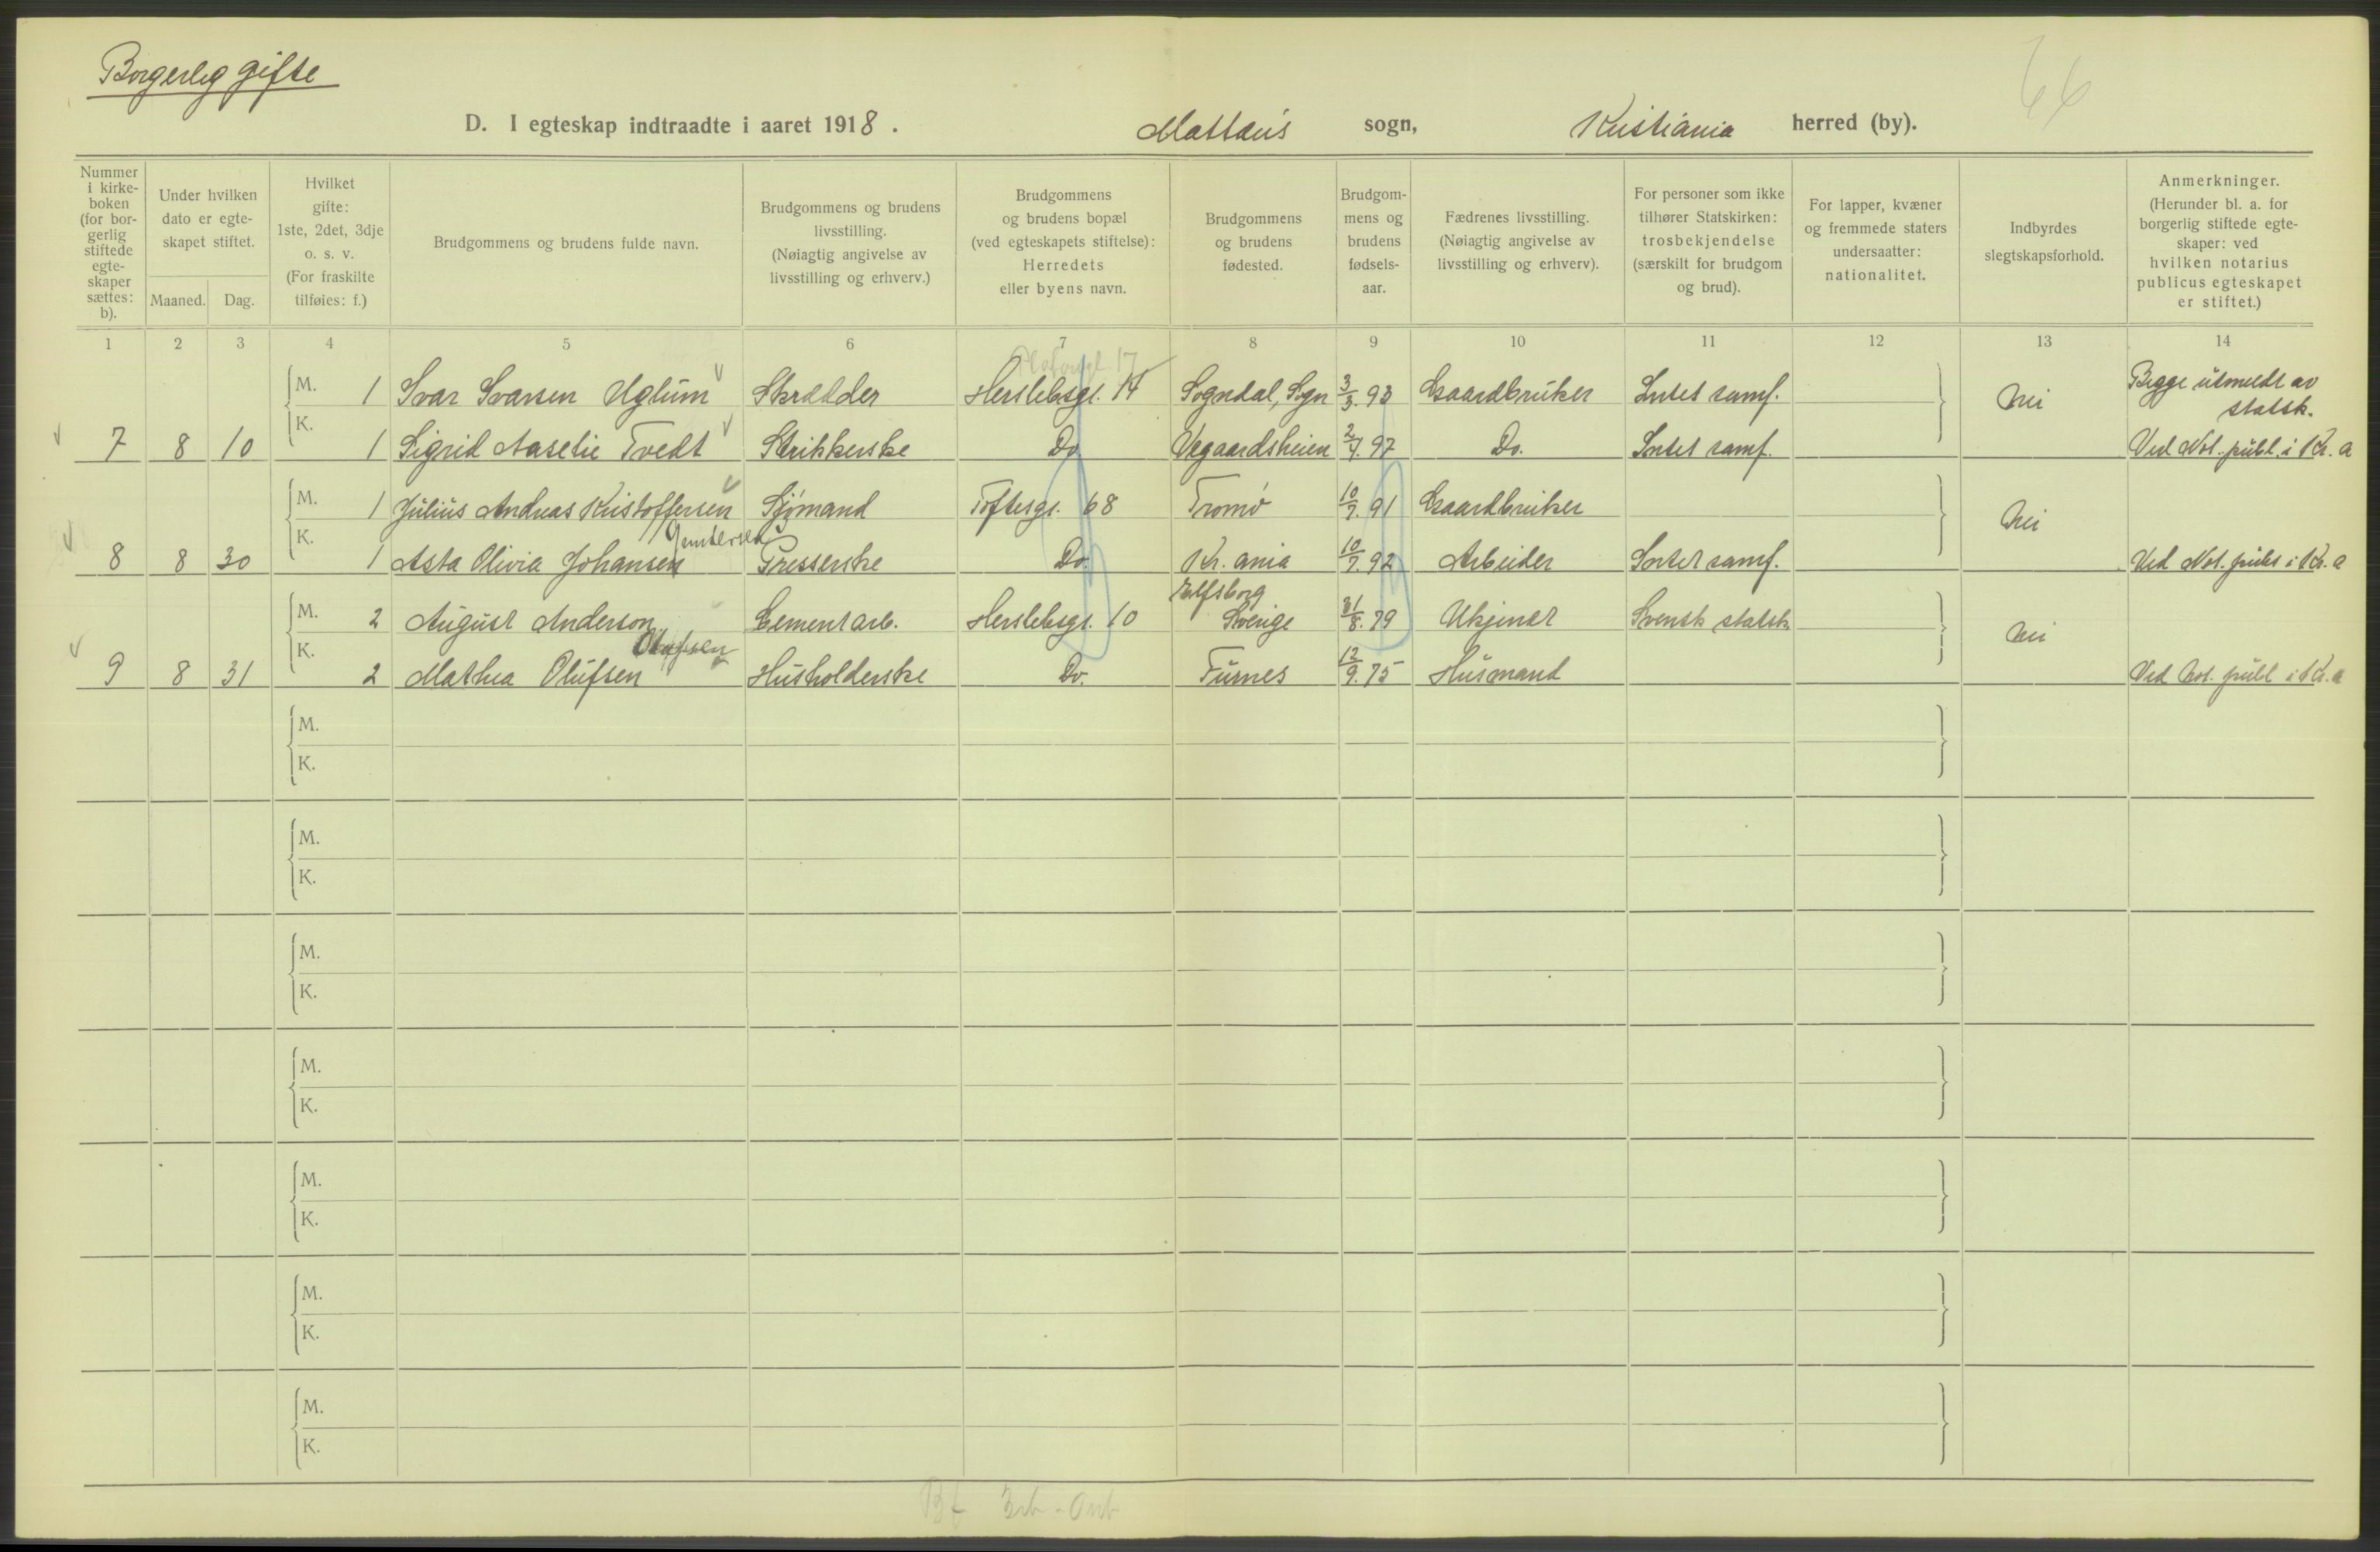 Borgerlig gifte
66
D. I egteskap indtraadte i aaret 1918. Mattæus sogn, Kristiania herred (by).
Nummer i kirkeboken (for borgerlig stiftede egteskaper sættes: b).
Under hvilken dato er egteskapet stiftet.
Maaned. Dag.
Hvilket gifte: 1ste, 2det, 3dje o. s. v. (For fraskilte tilføies: f.)
Brudgommens og brudens fulde navn.
Brudgommens og brudens livsstilling. (Nøiagtig angivelse av livsstilling og erhverv.)
Brudgommens og brudens bopæl (ved egteskapets stiftelse): Herredets eller byens navn.
Brudgommens og brudens fødested.
Brudgommens og brudens fødselsaar.
Fædrenes livsstilling. (Nøiagtig angivelse av livsstilling og erhverv).
For personer som ikke tilhører Statskirken: trosbekjendelse (særskilt for brudgom og brud).
For lapper, kvæner og fremmede staters undersaatter: nationalitet.
Indbyrdes slegtskapsforhold.
Anmerkninger. (Herunder bl. a. for borgerlig stiftede egteskaper: ved hvilken notarius publicus egteskapet er stiftet.)
1 2 3 4 5 6 7 8 9 10 11 12 13 14
M. 1 Ivar Ivarsen Uglum Skrædder Herslebsgt. 14 Sogndal, Sogn 3/3. 93 Gaardbruker Intet samf. Nei Begge utmeldt av statsk.
7 8 10 K. 1 Sigrid Aaselie Tvedt Strikkerske Do. Vegaardsheien 2/4. 97 Do. Intet samf. Ved Not. publ. i Kr.a
M. 1 Julius Andreas Kristoffersen Sjømand Toftesgt. 68 Tromø 10/7. 91 Gaardbruker Nei
Gundersen
8 8 30 K. 1 Asta Olivia Johansen Presserske Do. Kr.ania 10/7. 92 Arbeider Intet samf. Ved Not. publ i Kr.a
M. 2 August Anderson Cementarb. Herslebsgt. 10 Elfsborg Sverige 31/8. 79 Ukjendt Svensk statsk. Nei
Olufsen
9 8 31 K. 2 Mathea Olufsen Husholderske Do. Furnes 12/9. 75 Husmand Ved Not. publ i Kr.a
M.
K.
M.
K.
M.
K.
M.
K.
M.
K.
M.
K.
M.
K.